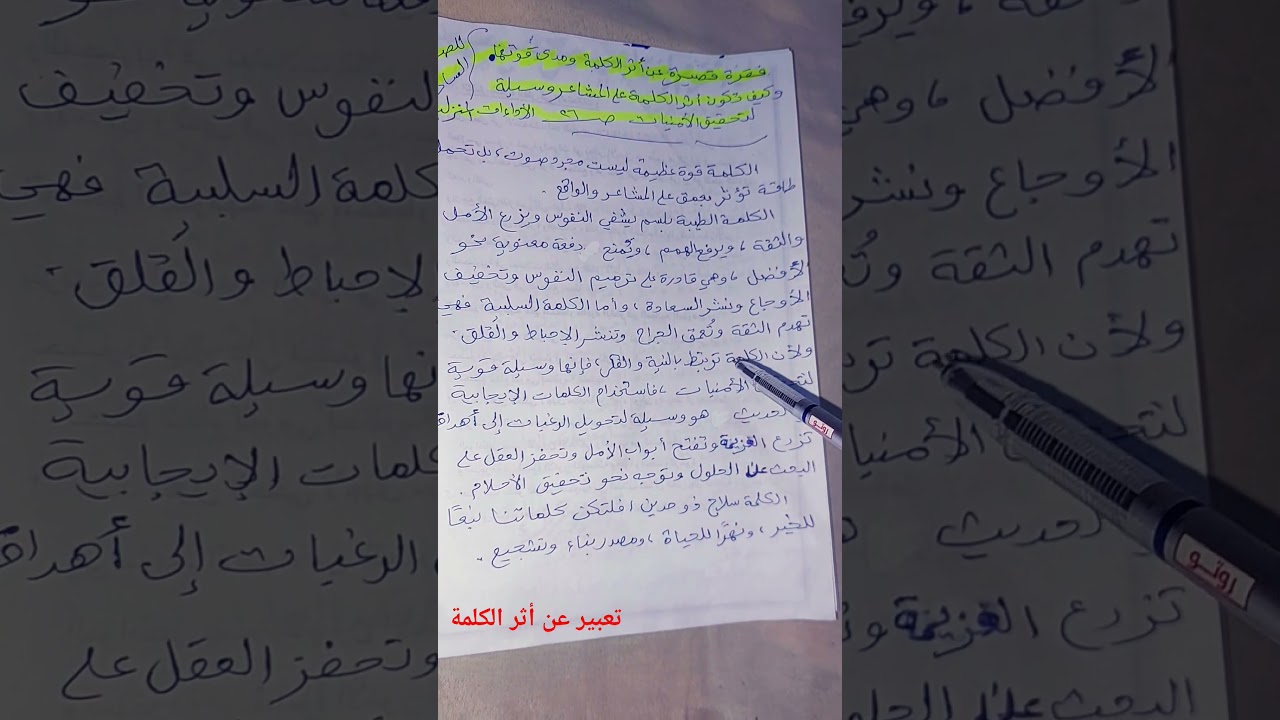 فقرة قصيرة عن أثر الكلمة ومدى قوتها
وكيف تكون أثر الكلمة على المشاعر وسيلة
لتحقيق الأمنيات ص الأداءات المنزلية
الكلمة قوة عظيمة ليست مجرد صوت، بل تحمل
طاقة تؤثر بعمق على المشاعر والواقع.
الكلمة الطيبة بلسم يشفي النفوس ويزرع الأمل
والثقة، ويرفع الهمم، وتمنح دفعة معنوية نحو
الأفضل، وهي قادرة على ترميم النفوس وتخفيف
الأوجاع ونشر السعادة، وأما الكلمة السلبية فهي
تهدم الثقة وتُعمق الجراح وتنشر الإحباط والقلق.
ولأن الكلمة ترتبط بالنية والفكر، فإنها وسيلة قوية
الأمنيات، فاستخدام الكلمات الإيجابية
هو وسيلة لتحويل الرغبات إلى أهداف
تزرع العزيمة وتفتح أبواب الأمل وتحفز العقل على
البحث عن الحلول وتوجه نحو تحقيق الأحلام.
الكلمة سلاح ذو حدين فلتكن كلماتنا نبعًا
للخير، ونهرًا للحياة، ومصدر بناء وتشجيع.
روتو
تعبير عن أثر الكلمة